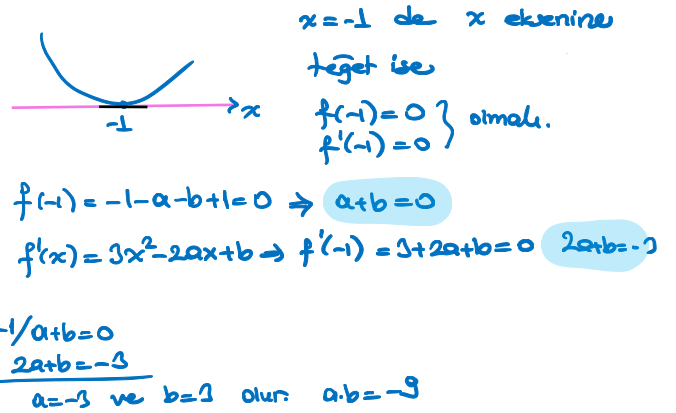 x=-1 de x eksenine
teğet ise
f(-1)=0
f'(-1)=0 } olmalı.
x
-1
f(-1)=-1-a-b+1=0 ⇒ a+b=0
f'(x)=3x²-2ax+b → f'(-1)=3+2a+b=0 2a+b=-3
-1/a+b=0
2a+b=-3
a=-3 ve b=3 olur. a.b=-9